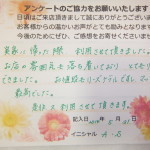 アンケートのご協力をお願いいたします
日頃はご来店頂きまして誠にありがとうございます
お客様からの温かいお声がとても励みとなります
今後のためにぜひ、ご感想をお寄せくださいませ
実家に帰った際 利用させて頂きました。
お店の雰囲気も落ち着いており
できました。
最高でした。
是非又利用させて頂きます。
記入日
イニシャル A.S